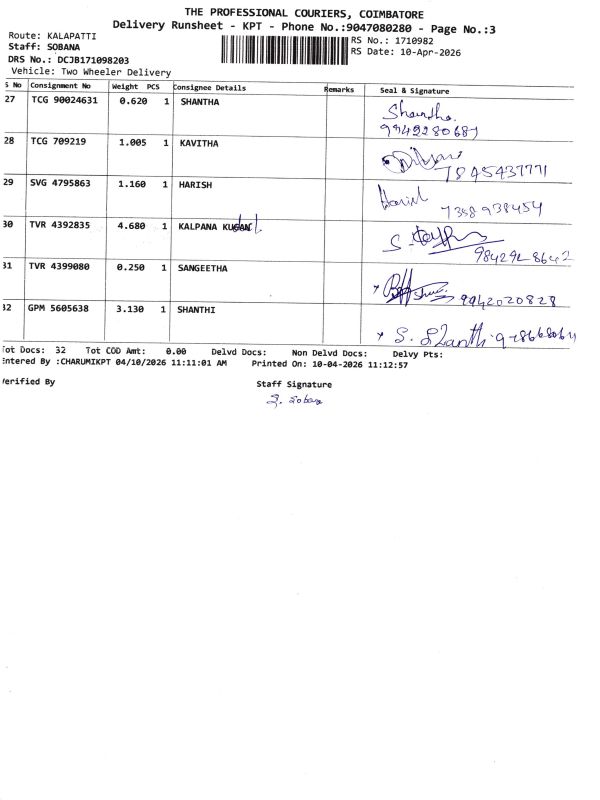 THE PROFESSIONAL COURIERS, COIMBATORE
Delivery Runsheet - KPT - Phone No.:9047080280 - Page No.:3
Route: KALAPATTI
RS No.: 1710982
Staff: SOBANA
RS Date: 10-Apr-2026
DRS No.: DCJB171098203
Vehicle: Two Wheeler Delivery
S No Consignment No Weight PCS Consignee Details Remarks Seal & Signature
27 TCG 90024631 0.620 1 SHANTHA Shantha.
28 TCG 709219 1.005 1 KAVITHA
7845437771
29 SVG 4795863 1.160 1 HARISH Harish
7358938454
30 TVR 4392835 4.680 1 KALPANA
31 TVR 4399080 0.250 1 SANGEETHA
9942020828
32 GPM 5605638 3.130 1 SHANTHI S. Shanthi
Tot Docs: 32 Tot COD Amt: 0.00 Delvd Docs: Non Delvd Docs: Delvy Pts:
Entered By :CHARUMIKPT 04/10/2026 11:11:01 AM Printed On: 10-04-2026 11:12:57
Verified By
Staff Signature
S. Sobana